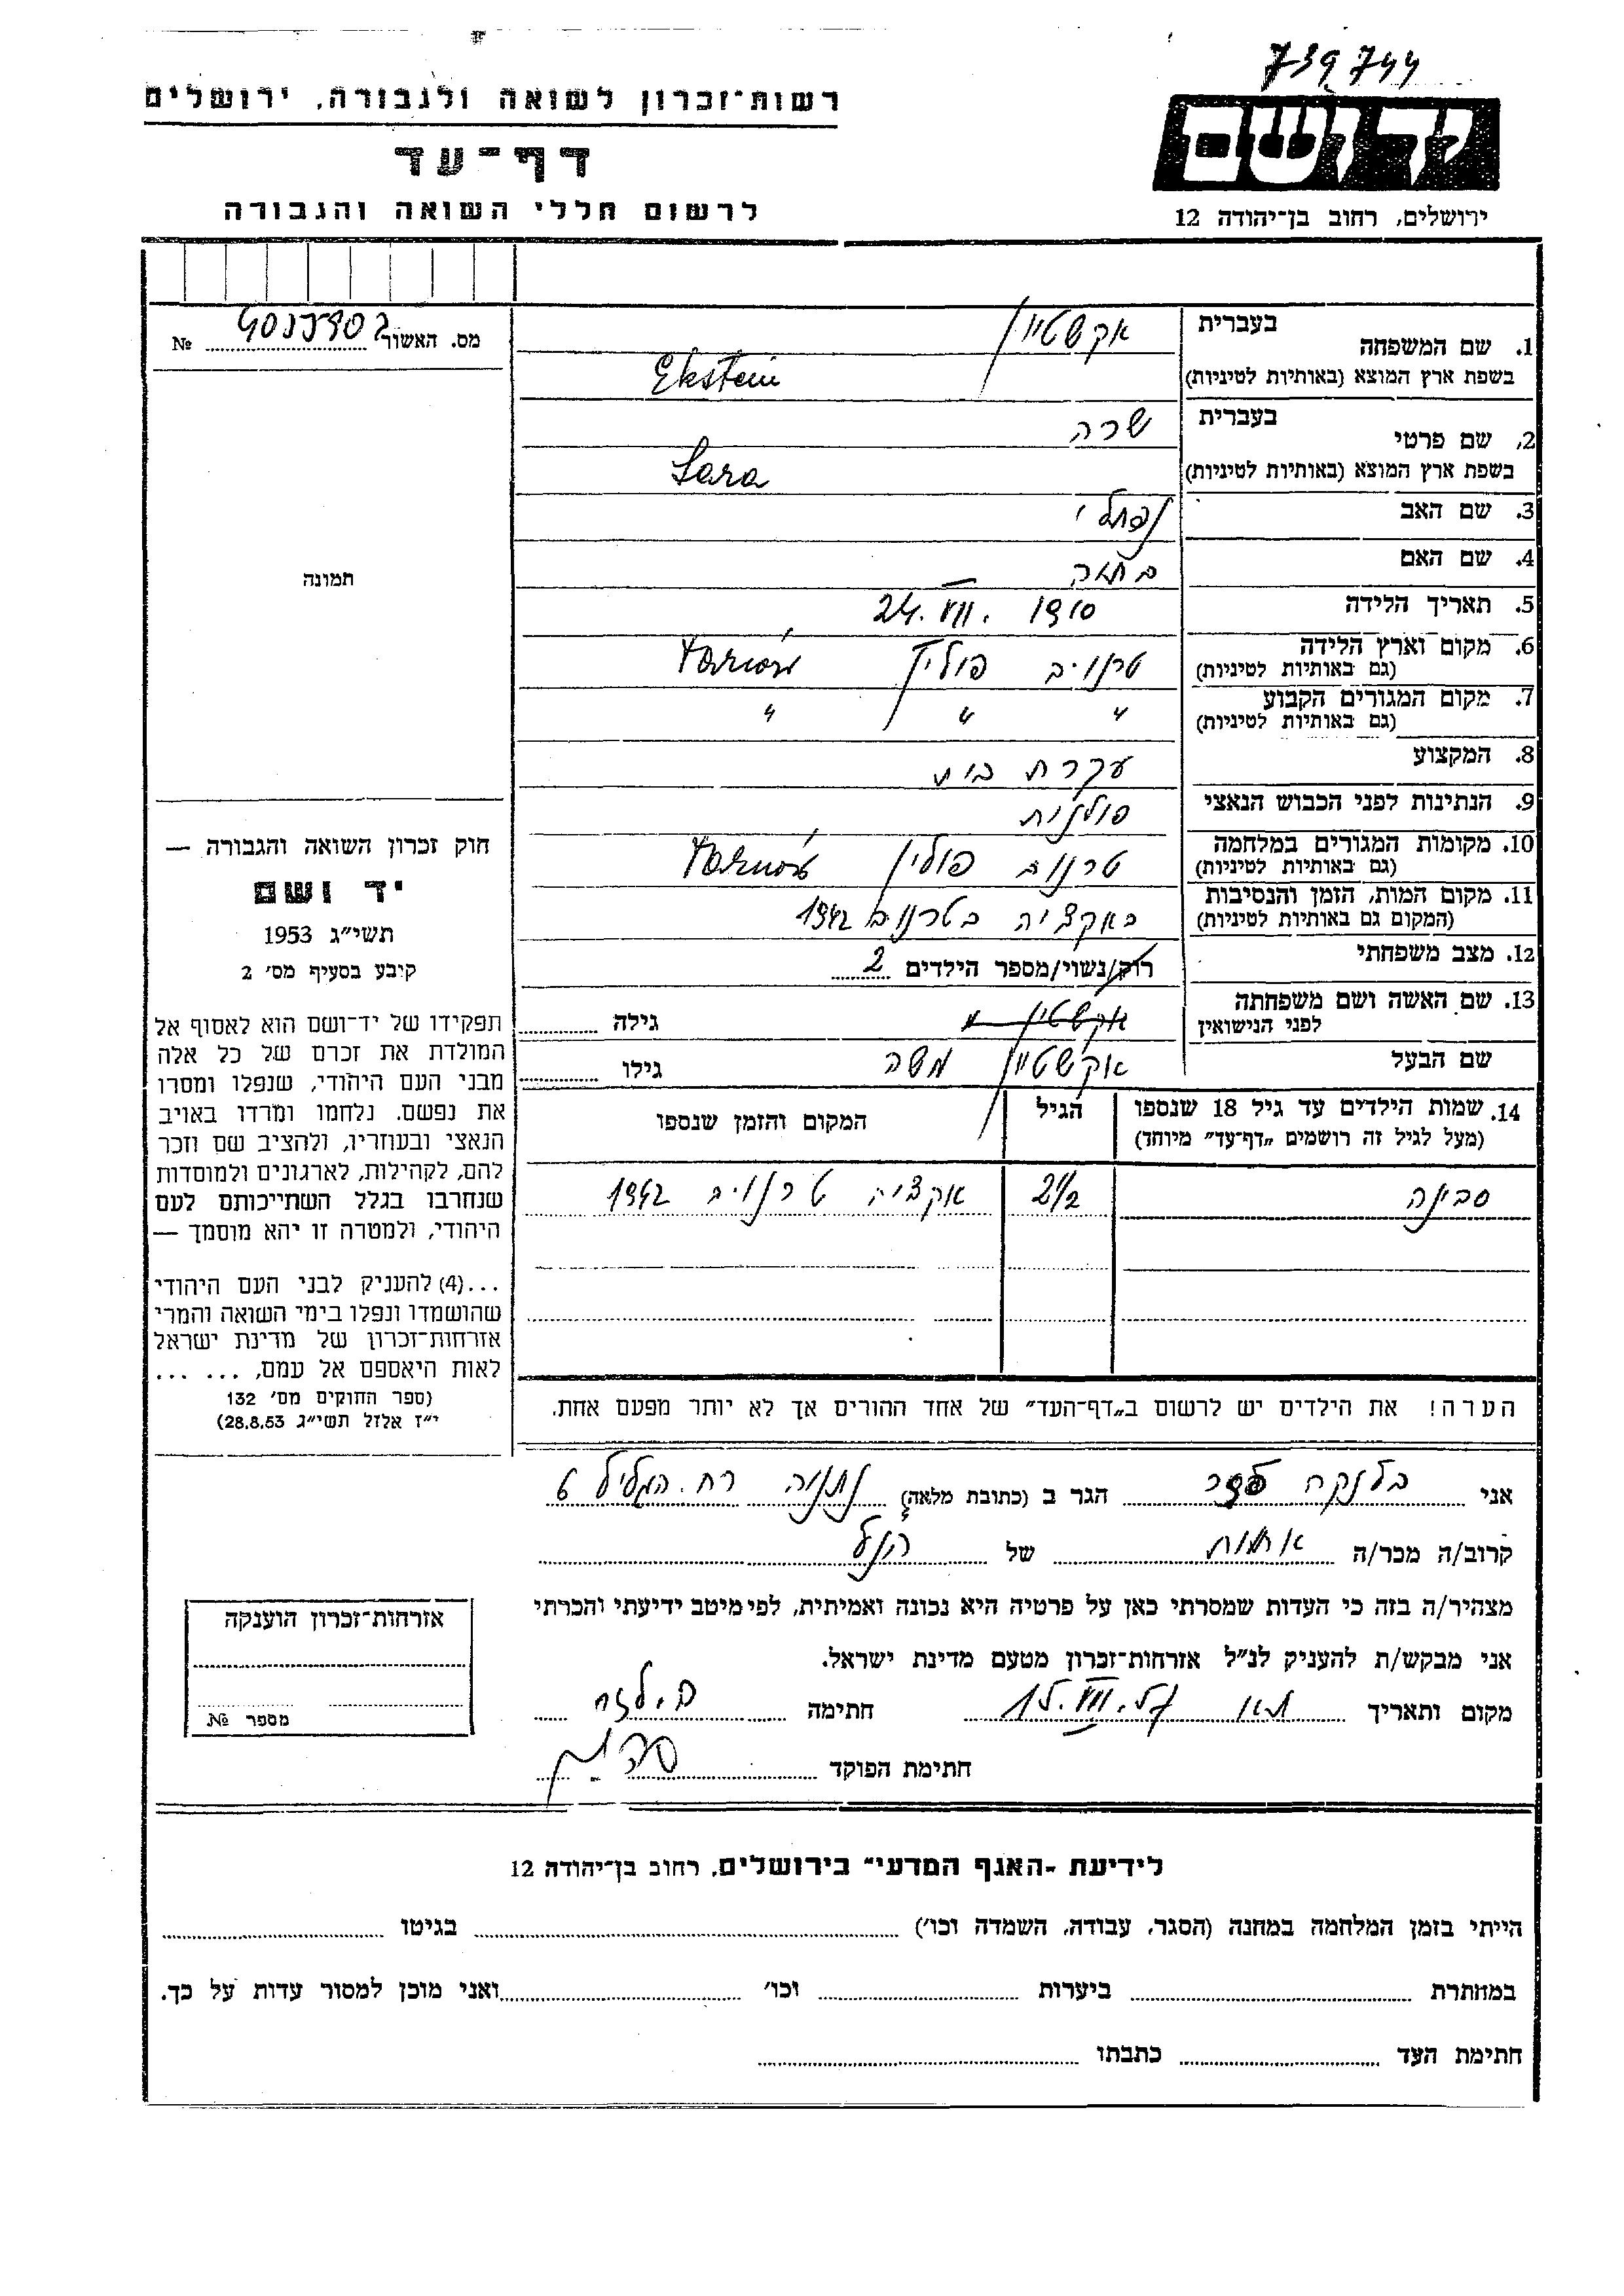 739744
ידושם
ירושלים, רחוב בן־יהודה 12
רשות־זכרון לשואה ולגבורה, ירושלים
דף־עד
לרשום חללי השואה והגבורה
מס. האשור №
תמונה
חוק זכרון השואה והגבורה —
יד ושם
תשי״ג 1953
קיבע בסעיף מס׳ 2
תפקידו של יד־ושם הוא לאסוף אל
המולדת את זכרם של כל אלה
מבני העם היהודי, שנפלו ומסרו
את נפשם. נלחמו ומרדו באויב
הנאצי ובעוזריו, ולהציב שם וזכר
להם, לקהילות, לארגונים ולמוסדות
שנחרבו בגלל השתייכותם לעם
היהודי, ולמטרה זו יהא מוסמך —
...(4) להעניק לבני העם היהודי
שהושמדו ונפלו בימי השואה והמרי
אזרחות־זכרון של מדינת ישראל
לאות היאספם אל עמם, ... ...
(ספר החוקים מס׳ 132
י״ז אלול תשי״ג 28.8.53)
1. שם המשפחה בעברית אקשטיין
בשפת ארץ המוצא (באותיות לטיניות) Ekstein
2. שם פרטי בעברית שרה
בשפת ארץ המוצא (באותיות לטיניות) Sara
3. שם האב נפתלי
4. שם האם
5. תאריך הלידה 24.VII.1910
6. מקום וארץ הלידה טרנוב פולין Tarnów
(גם באותיות לטיניות)
7. מקום המגורים הקבוע " " "
(גם באותיות לטיניות)
8. המקצוע עקרת בית
9. הנתינות לפני הכבוש הנאצי פולנית
10. מקומות המגורים במלחמה טרנוב פולין Tarnów
(גם באותיות לטיניות)
11. מקום המות, הזמן והנסיבות באקציה בטרנוב 1942
(המקום גם באותיות לטיניות)
12. מצב משפחתי רווק/נשוי/מספר הילדים 2
13. שם האשה ושם משפחתה אקשטיין גילה
לפני הנישואין
שם הבעל אקשטיין משה גילו
14. שמות הילדים עד גיל 18 שנספו הגיל המקום והזמן שנספו
(מעל לגיל זה רושמים „דף־עד״ מיוחד)
סבינה 2½ אקציה טרנוב 1942
הערה! את הילדים יש לרשום ב„דף־העד״ של אחד ההורים אך לא יותר מפעם אחת.
אני בלנקה הגר ב (כתובת מלאה) נתניה רח. הגליל 6
קרוב/ה מכר/ה אחות של הנ״ל
מצהיר/ה בזה כי העדות שמסרתי כאן על פרטיה היא נכונה ואמיתית, לפי מיטב ידיעתי והכרתי
אני מבקש/ת להעניק לנ״ל אזרחות־זכרון מטעם מדינת ישראל.
מקום ותאריך חתימה
חתימת הפוקד
אזרחות־זכרון הוענקה
מספר №
לידיעת ־האגף המדעי״ בירושלים, רחוב בן־יהודה 12
הייתי בזמן המלחמה במחנה (הסגר, עבודה, השמדה וכו׳) בגיטו
במחתרת ביערות וכו׳ ואני מוכן למסור עדות על כך.
חתימת העד כתבתו